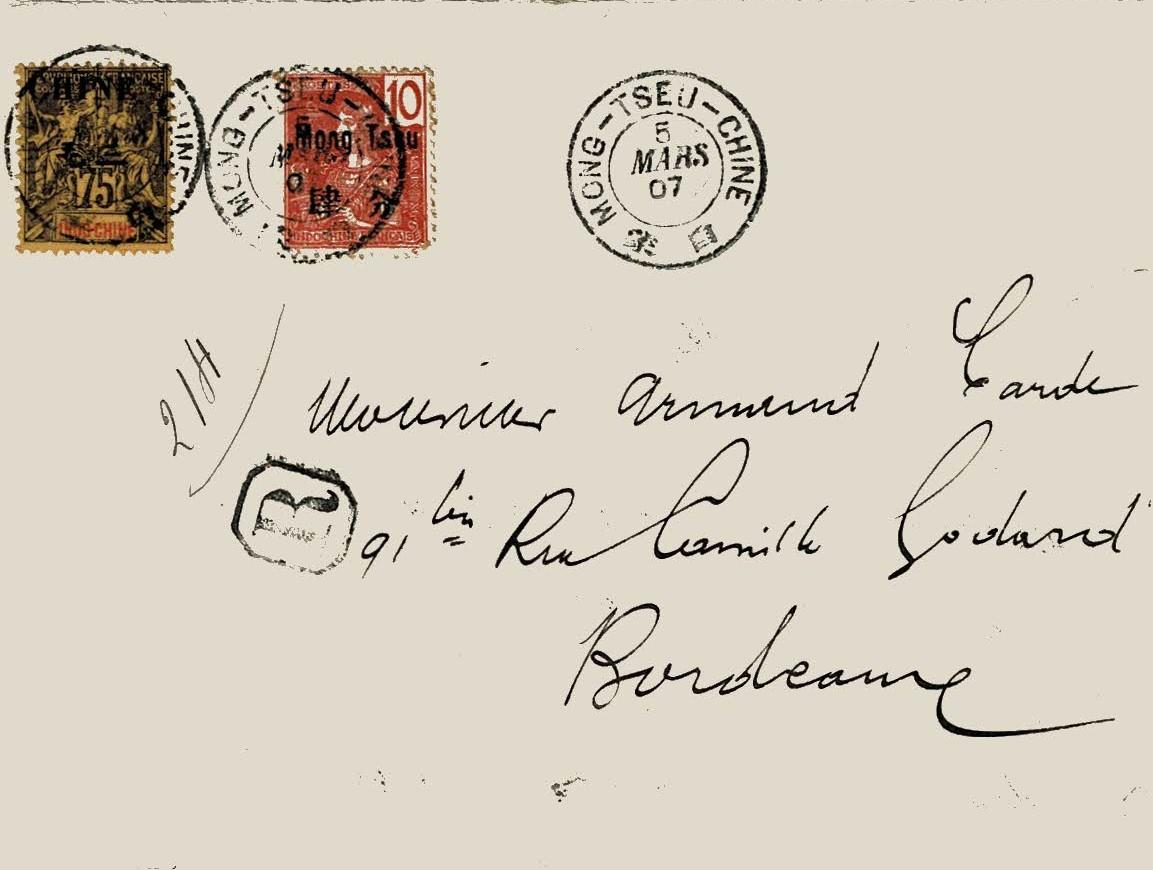 CHINE
75
INDO-CHINE
CHINE
MONG-TSEU-
10
Mong Tseu
肆
INDOCHINE FRANÇAISE
MONG-TSEU-CHINE
5
MARS
07
自
21H
Monsieur Armand Carde
R
91 bis Rue Camille Godard
Bordeaux